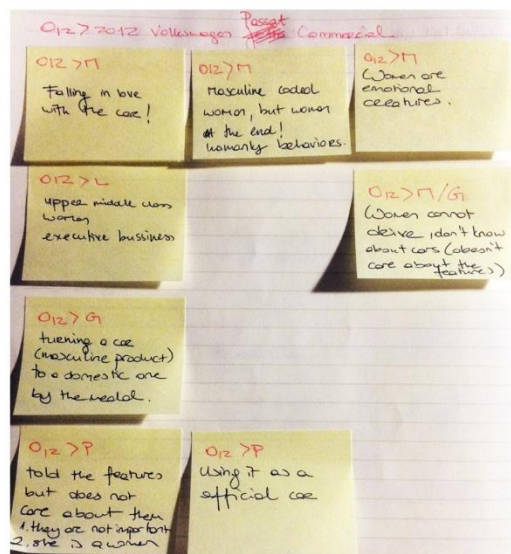 O12 > 2012 Volkswagen Passat Commercial
O12 > M
Falling in love
with the car!
O12 > M
Masculine coded
woman, but woman
at the end!
womanly behaviors.
O12 > M
Women are
emotional
creatures.
O12 > L
upper middle class
woman
executive bussiness
O12 > M/G
Women cannot
drive, don't know
about cars (doesn't
care about the
features)
O12 > G
turning a car
(masculine product)
to a domestic one
by the
O12 > P
told the features
but does not
care about them
1. they are not important
2. she is a women
O12 > P
Using it as a
official car